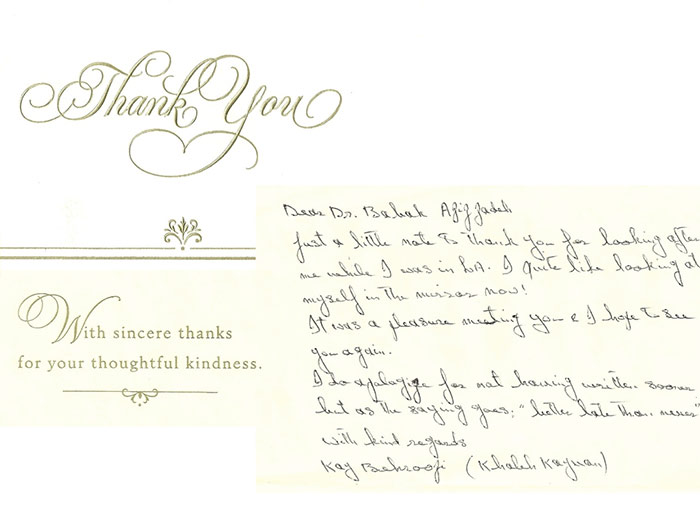 Thank You
With sincere thanks
for your thoughtful kindness.
Dear Dr. Babak Azizzadeh
Just a little note to thank you for looking after
me while I was in L.A. I quite like looking at
myself in the mirror now!
It was a pleasure meeting you & I hope to see
you again.
I do apologize for not having written sooner
but as the saying goes; "better late than never"
with kind regards
Kay Behrooji (Khaleh Kayvan)